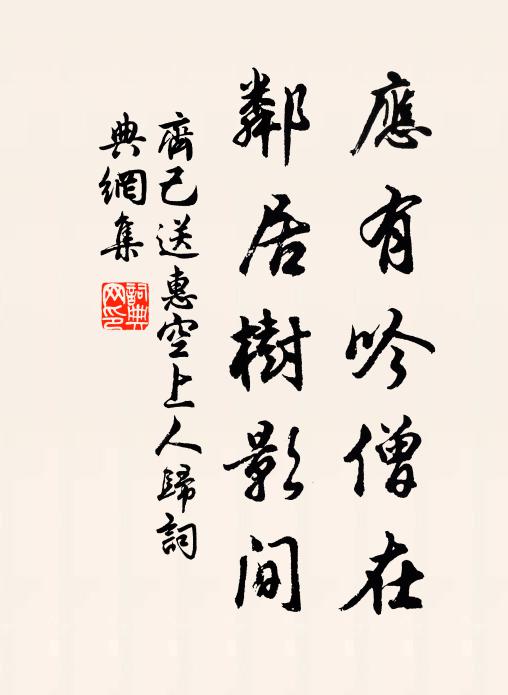 應有吟僧在
鄰居樹影間
齊己送惠空上人歸詞
典網集
詞典
网印